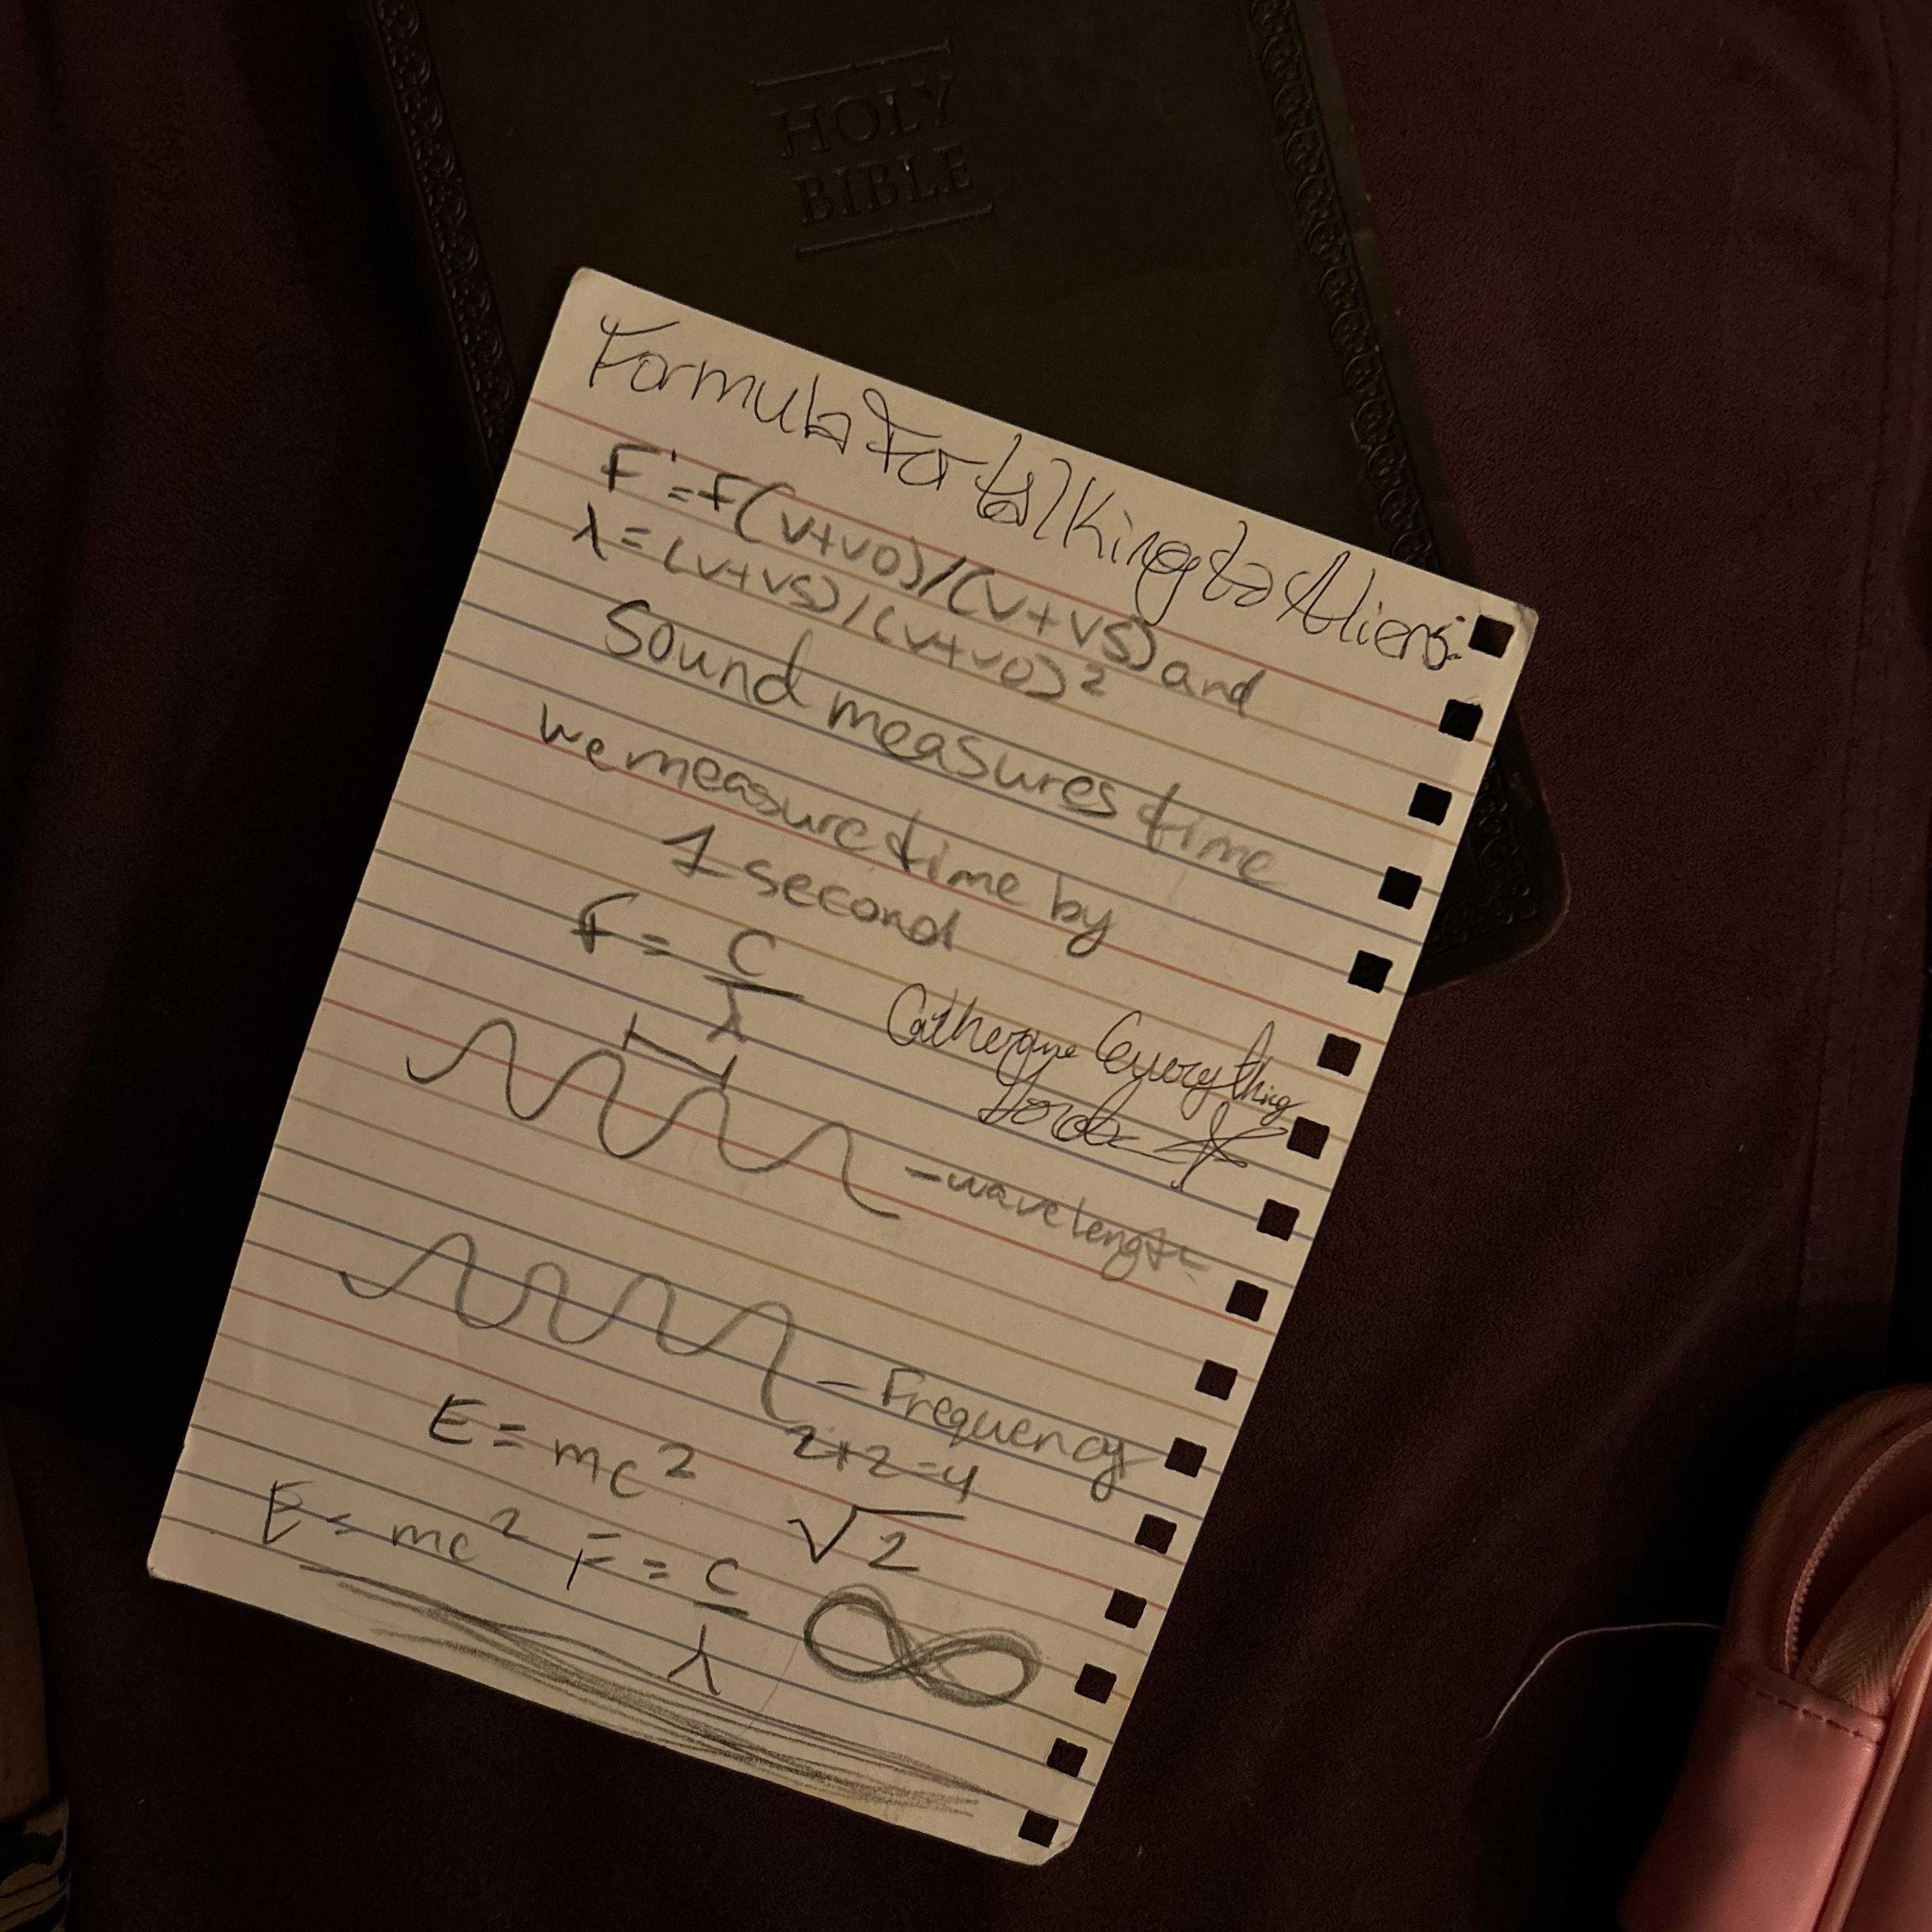 HOLY
BIBLE
Formula For talking to Aliens:
F'=F(v+vo)/(v+vs) and
λ=(v+vs)/(v+vo)²
Sound measures time
we measure time by
1 second
F = c/λ
Catherine Everything
-wavelength
-Frequency
E=mc²
2+2=4
√2
E=mc² F=c/λ
∞